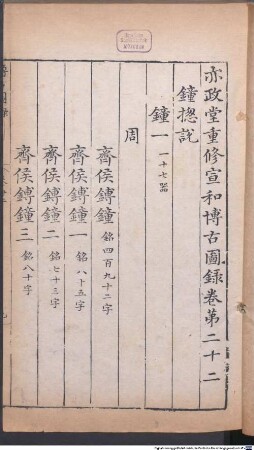 亦政堂重修宣和博古圖錄卷第二十二
鐘摠說
鐘一 一十七器
周
齊侯鎛鐘 銘四百九十二字
齊侯鎛鐘一 銘八十五字
齊侯鎛鐘二 銘七十三字
齊侯鎛鐘三 銘八十字